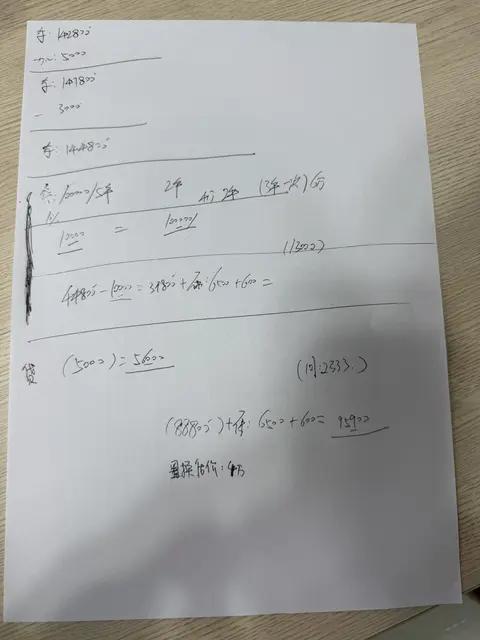 车: 142800
加: 5000
车: 147800
- 3000
车: 144800
100000/5年 2年 2年 (3年一次)
1%
10000 = 10000
(13000)
44800-10000=34800+保:6500+600=
贷 (5000)=5600 (月:2333.)
(88800)+保: 6500+600=95900
置换估价:4万